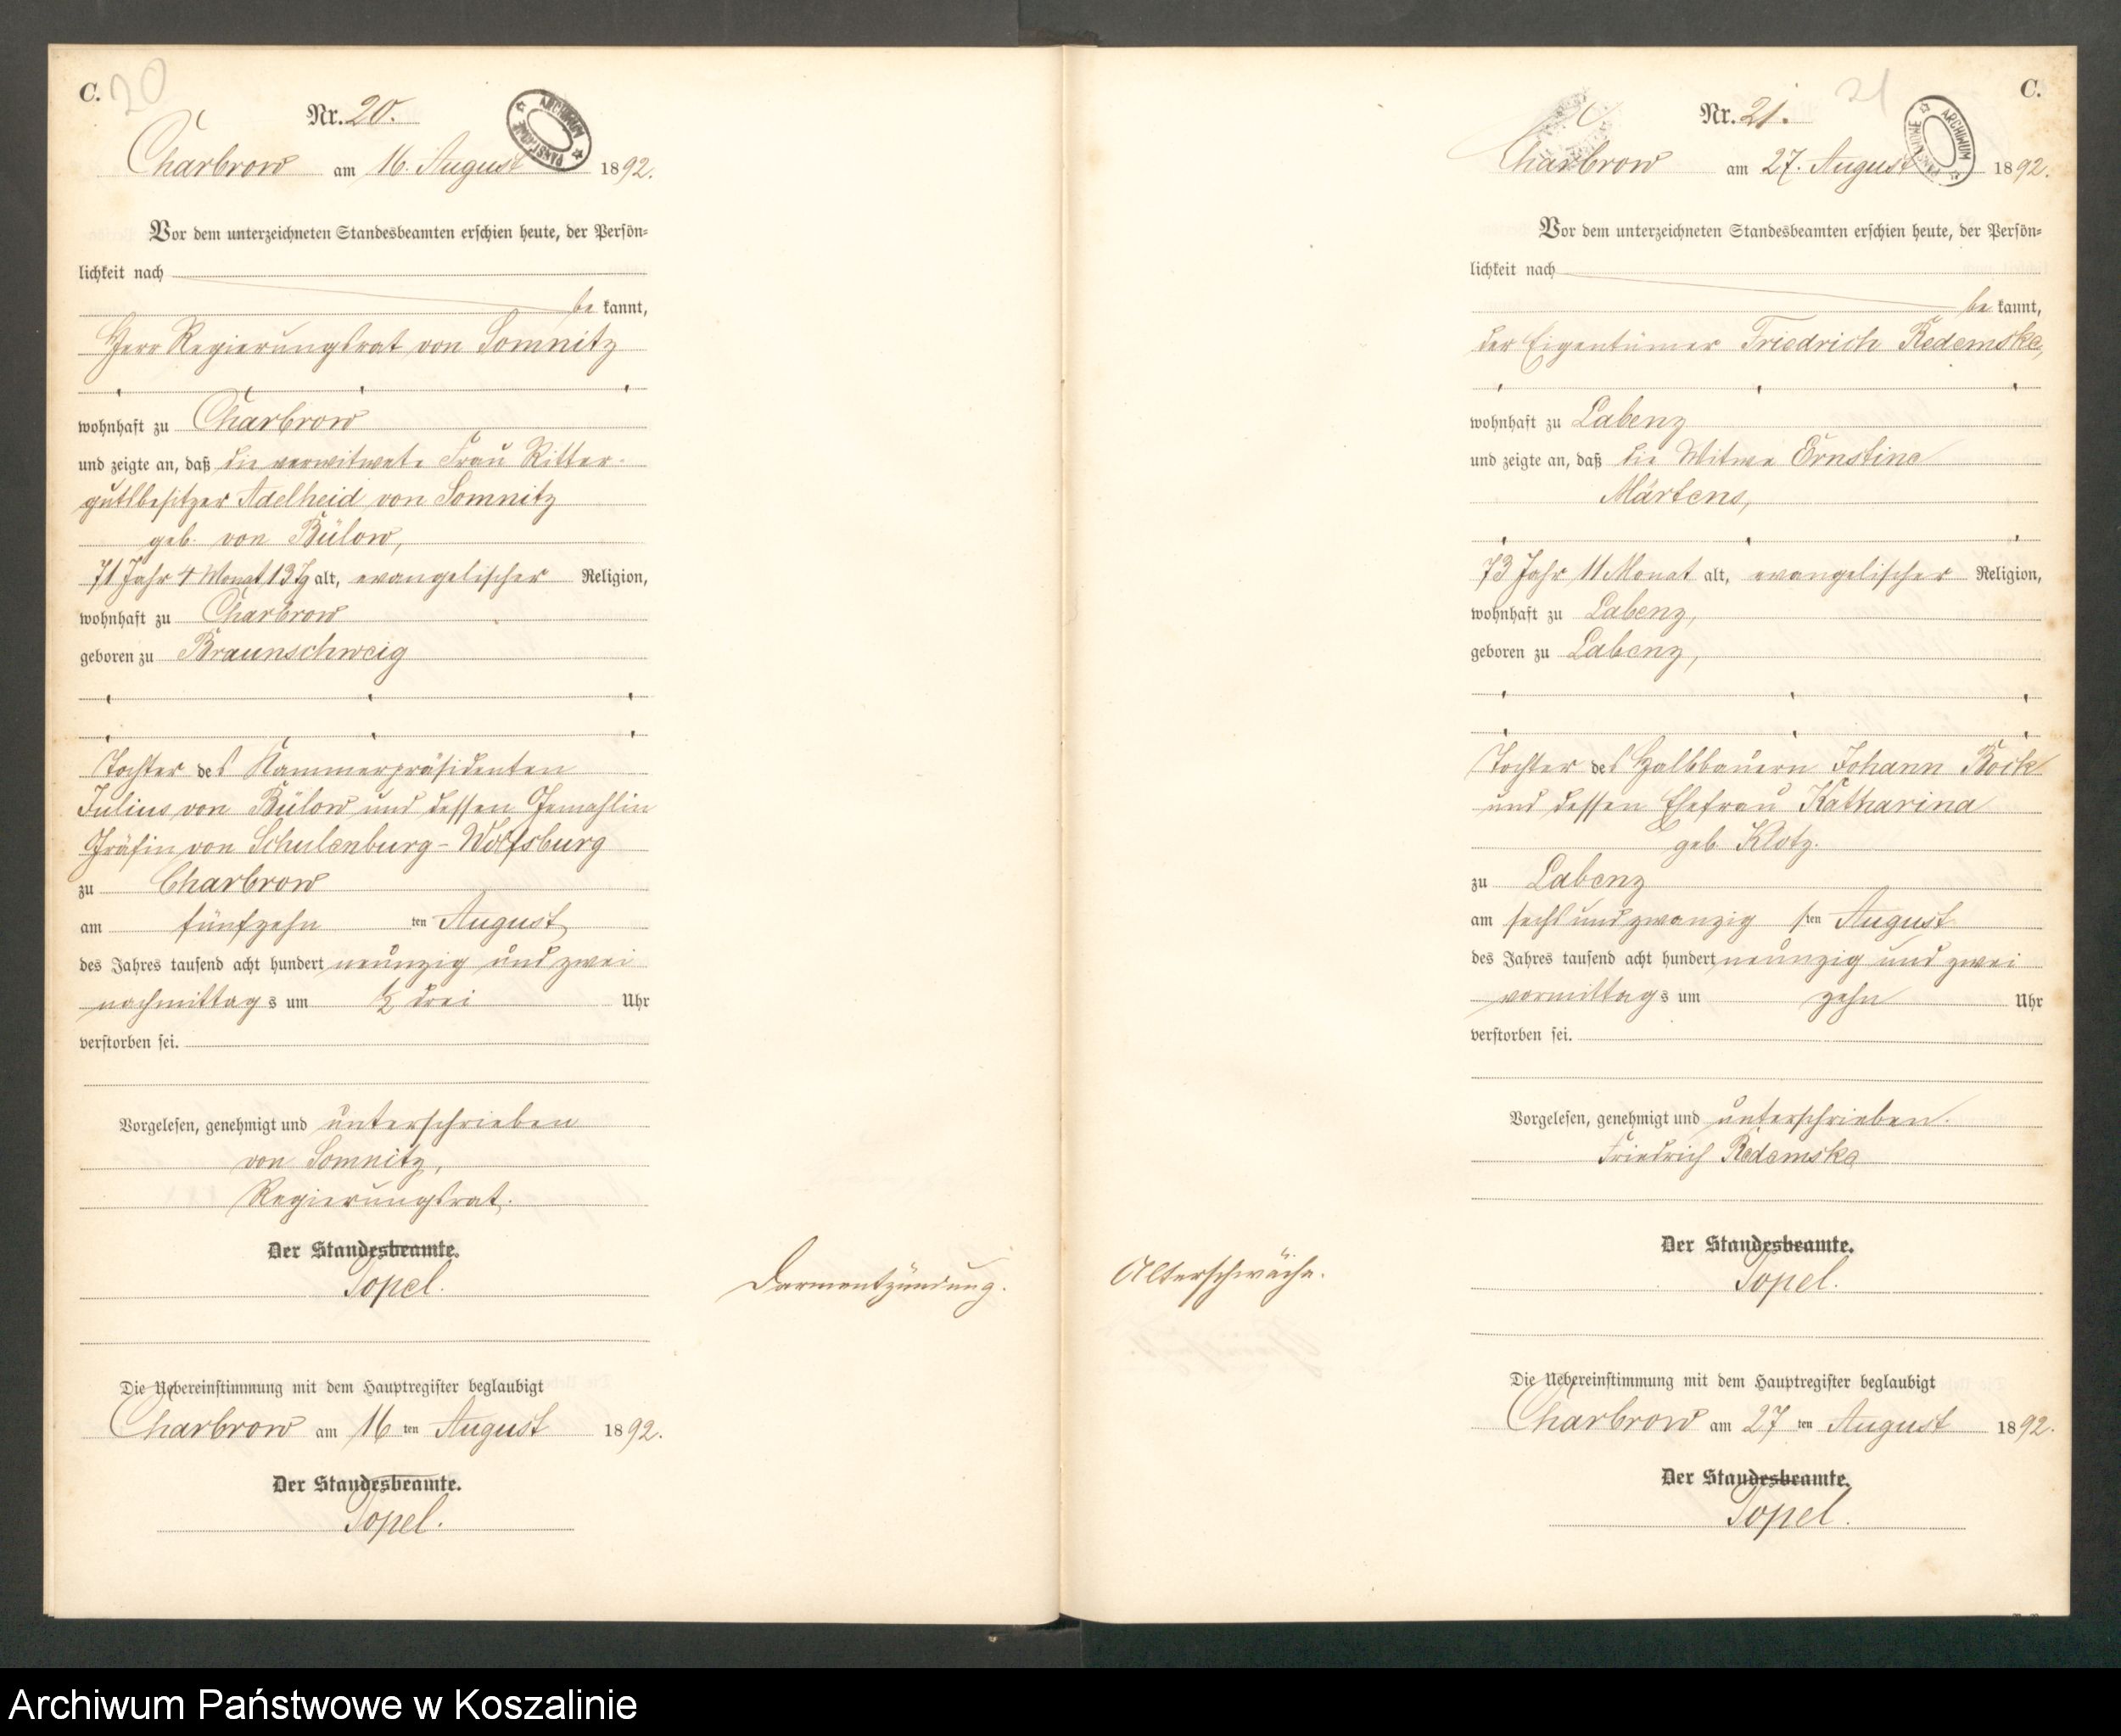 C. 20
Nr. 20.
ARCHIWUM PAŃSTWOWE
Charbrow am 16. August 1892.
Vor dem unterzeichneten Standesbeamten erschien heute, der Persön-
lichkeit nach
be kannt,
Herr Regierungsrat von Somnitz
wohnhaft zu Charbrow
und zeigte an, daß die verwitwete Frau Ritter-
gutsbesitzer Adelheid von Somnitz
geb. von Bülow,
71 Jahr 4 Monat 13 Tg alt, evangelischer Religion,
wohnhaft zu Charbrow
geboren zu Braunschweig
Tochter des Kammerpräsidenten
Julius von Bülow und dessen Gemahlin
Gräfin von Schulenburg-Wolfsburg
zu Charbrow
am fünfzehn ten August
des Jahres tausend acht hundert neunzig und zwei
nachmittags um ½ drei Uhr
verstorben sei.
Vorgelesen, genehmigt und unterschrieben
von Somnitz,
Regierungsrat.
Der Standesbeamte.
Topel.
Darmentzündung.
Die Uebereinstimmung mit dem Hauptregister beglaubigt
Charbrow am 16 ten August 1892.
Der Standesbeamte.
Topel.
21 C.
Nr. 21.
ARCHIWUM PAŃSTWOWE
Charbrow am 27. August 1892.
Vor dem unterzeichneten Standesbeamten erschien heute, der Persön-
lichkeit nach
be kannt,
der Eigentümer Friedrich Redemske,
wohnhaft zu Labenz
und zeigte an, daß die Witwe Ernstine
Märtens,
73 Jahr 11 Monat alt, evangelischer Religion,
wohnhaft zu Labenz,
geboren zu Labenz,
Tochter des Halbbauern Johann Bock
und dessen Ehefrau Katharina
geb. Klotz.
zu Labenz
am sechs und zwanzig sten August
des Jahres tausend acht hundert neunzig und zwei
vormittags um zehn Uhr
verstorben sei.
Vorgelesen, genehmigt und unterschrieben.
Friedrich Redemske
Der Standesbeamte.
Topel.
Alterschwäche.
Die Uebereinstimmung mit dem Hauptregister beglaubigt
Charbrow am 27 ten August 1892.
Der Standesbeamte.
Topel.
Archiwum Państwowe w Koszalinie